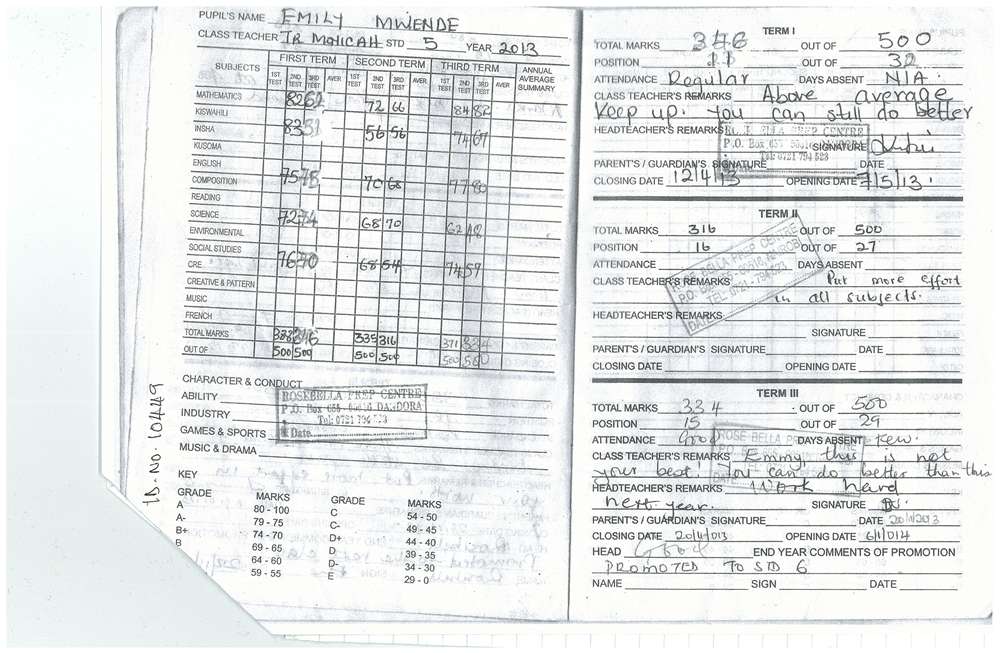 PUPIL'S NAME EMILY MWENDE
CLASS TEACHER TR MOHICAH STD 5 YEAR 2013
SUBJECTS FIRST TERM SECOND TERM THIRD TERM ANNUAL AVERAGE SUMMARY
1ST TEST 2ND TEST 3RD TEST AVER 1ST TEST 2ND TEST 3RD TEST AVER 1ST TEST 2ND TEST 3RD TEST AVER
MATHEMATICS 82 62 72 66 84 82
KISWAHILI
INSHA 56 56 74 67
KUSOMA
ENGLISH
COMPOSITION 75 78 70 68 77 80
READING
SCIENCE 72 74 68 70 62 48
ENVIRONMENTAL
SOCIAL STUDIES
CRE 76 70 68 54 74 57
CREATIVE & PATTERN
MUSIC
FRENCH
TOTAL MARKS 346 335 316 371 334
OUT OF 500 500 500 500 500 500
CHARACTER & CONDUCT
ABILITY
INDUSTRY
GAMES & SPORTS
MUSIC & DRAMA
ROSEBELLA PREP CENTRE
P.O. Box DANDORA
Tel: 0721 794 523
Date
1D. NO. 10449
KEY
GRADE MARKS GRADE MARKS
A 80 - 100 C 54 - 50
A- 79 - 75 C- 49 - 45
B+ 74 - 70 D+ 44 - 40
B 69 - 65 D 39 - 35
64 - 60 D- 34 - 30
59 - 55 E 29 - 0
TERM I
TOTAL MARKS 346 OUT OF 500
POSITION 11 OUT OF 32
ATTENDANCE Regular DAYS ABSENT N/A.
CLASS TEACHER'S REMARKS Above average
Keep up. You can still do better
HEADTEACHER'S REMARKS SIGNATURE
PREP CENTRE
P.O. Box
Tel: 0721 794 523
PARENT'S / GUARDIAN'S SIGNATURE DATE
CLOSING DATE 12/4/13 OPENING DATE 7/5/13.
TERM II
TOTAL MARKS 316 OUT OF 500
POSITION 16 OUT OF 27
ATTENDANCE DAYS ABSENT
CLASS TEACHER'S REMARKS Put more effort
in all subjects.
ROSE BELLA PREP CENTRE
P.O. BOX NAIROBI
TEL 0721 - 794523
DATE
HEADTEACHER'S REMARKS
SIGNATURE
PARENT'S / GUARDIAN'S SIGNATURE DATE
CLOSING DATE OPENING DATE
TERM III
TOTAL MARKS 334 OUT OF 500
POSITION 15 OUT OF 29
ATTENDANCE Good DAYS ABSENT Few.
CLASS TEACHER'S REMARKS Emmy, this is not
your best. You can do better than this
ROSE BELLA
DATE
HEADTEACHER'S REMARKS Work hard
next year. SIGNATURE
PARENT'S / GUARDIAN'S SIGNATURE DATE
CLOSING DATE 20/11/013 OPENING DATE 6/1/014
HEAD Good END YEAR COMMENTS OF PROMOTION
PROMOTED TO STD 6
NAME SIGN DATE